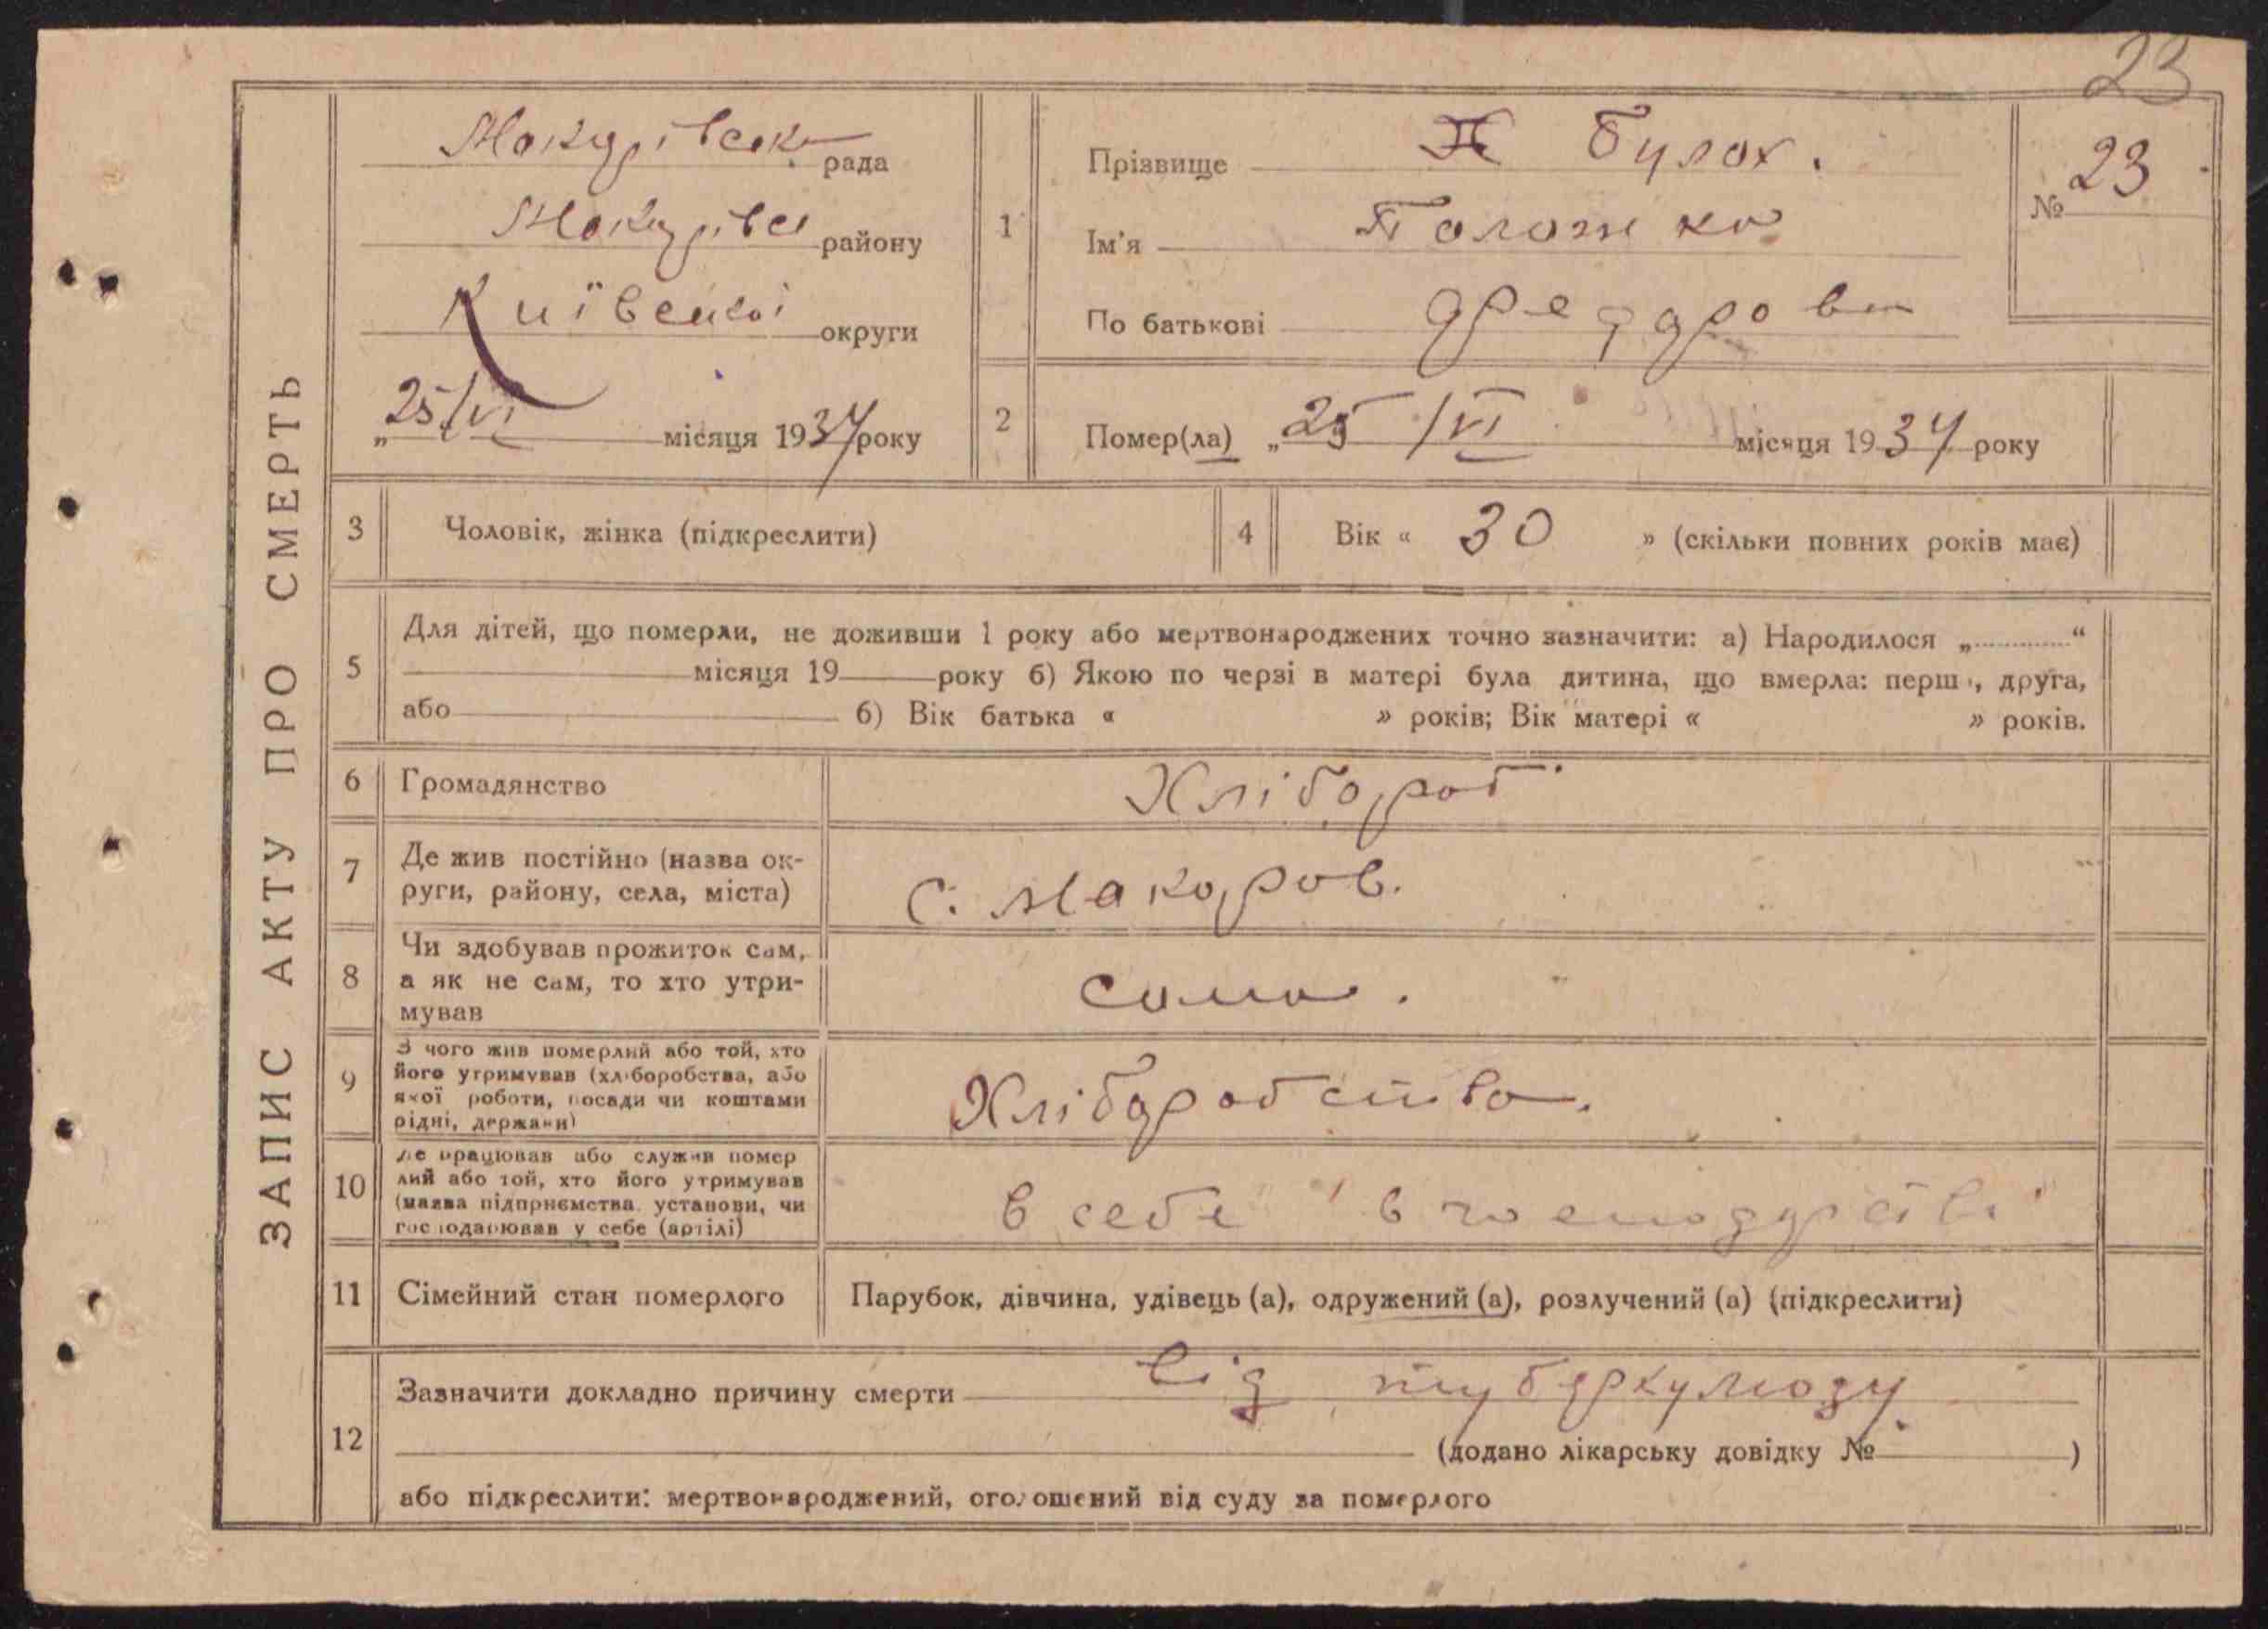 23
ЗАПИС АКТУ ПРО СМЕРТЬ
Макарівська рада
Макарівсь району
Київської округи
„25/VI місяця 1934 року
1
Прізвище Булах.
Ім'я Палажка
По батькові
№ 23
2
Помер(ла) „25/VI місяця 1934 року
3
Чоловік, жінка (підкреслити)
4
Вік « 30 » (скільки повних років має)
5
Для дітей, що померли, не доживши 1 року або мертвонароджених точно зазначити: а) Народилося „ “
місяця 19 року б) Якою по черзі в матері була дитина, що вмерла: перша, друга,
або б) Вік батька « » років; Вік матері « » років.
6
Громадянство Хлібороб
7
Де жив постійно (назва ок-
руги, району, села, міста)
с. Макаров.
8
Чи здобував прожиток сам,
а як не сам, то хто утри-
мував
сама.
9
З чого жив померлий або той, хто
його утримував (хліборобства, або
якої роботи, посади чи коштами
рідні, держави)
Хліборобство.
10
Де працював або служив помер
лий або той, хто його утримував
(назва підприємства, установи, чи
господарював у себе (артілі)
в себе в господарстві
11
Сімейний стан померлого
Парубок, дівчина, удівець (а), одружений (а), розлучений (а) (підкреслити)
12
Зазначити докладно причину смерти від туберкульозу
(додано лікарську довідку № )
або підкреслити: мертвонароджений, оголошений від суду за померлого